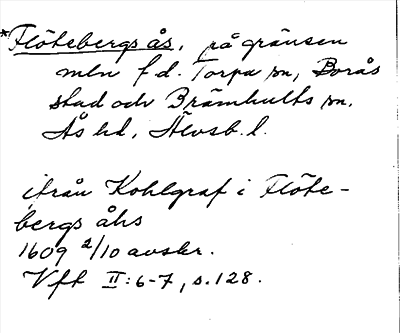 *Flötebergs ås, på gränsen
mln f d. Torpa sn, Borås
stad och Brämhults sn.
Ås hd, Älvsb. l.
ifrån Kohlgraf i Flöte-
bergs åhs
1609 2/10 avskr.
Vft II:6-7, s.128.